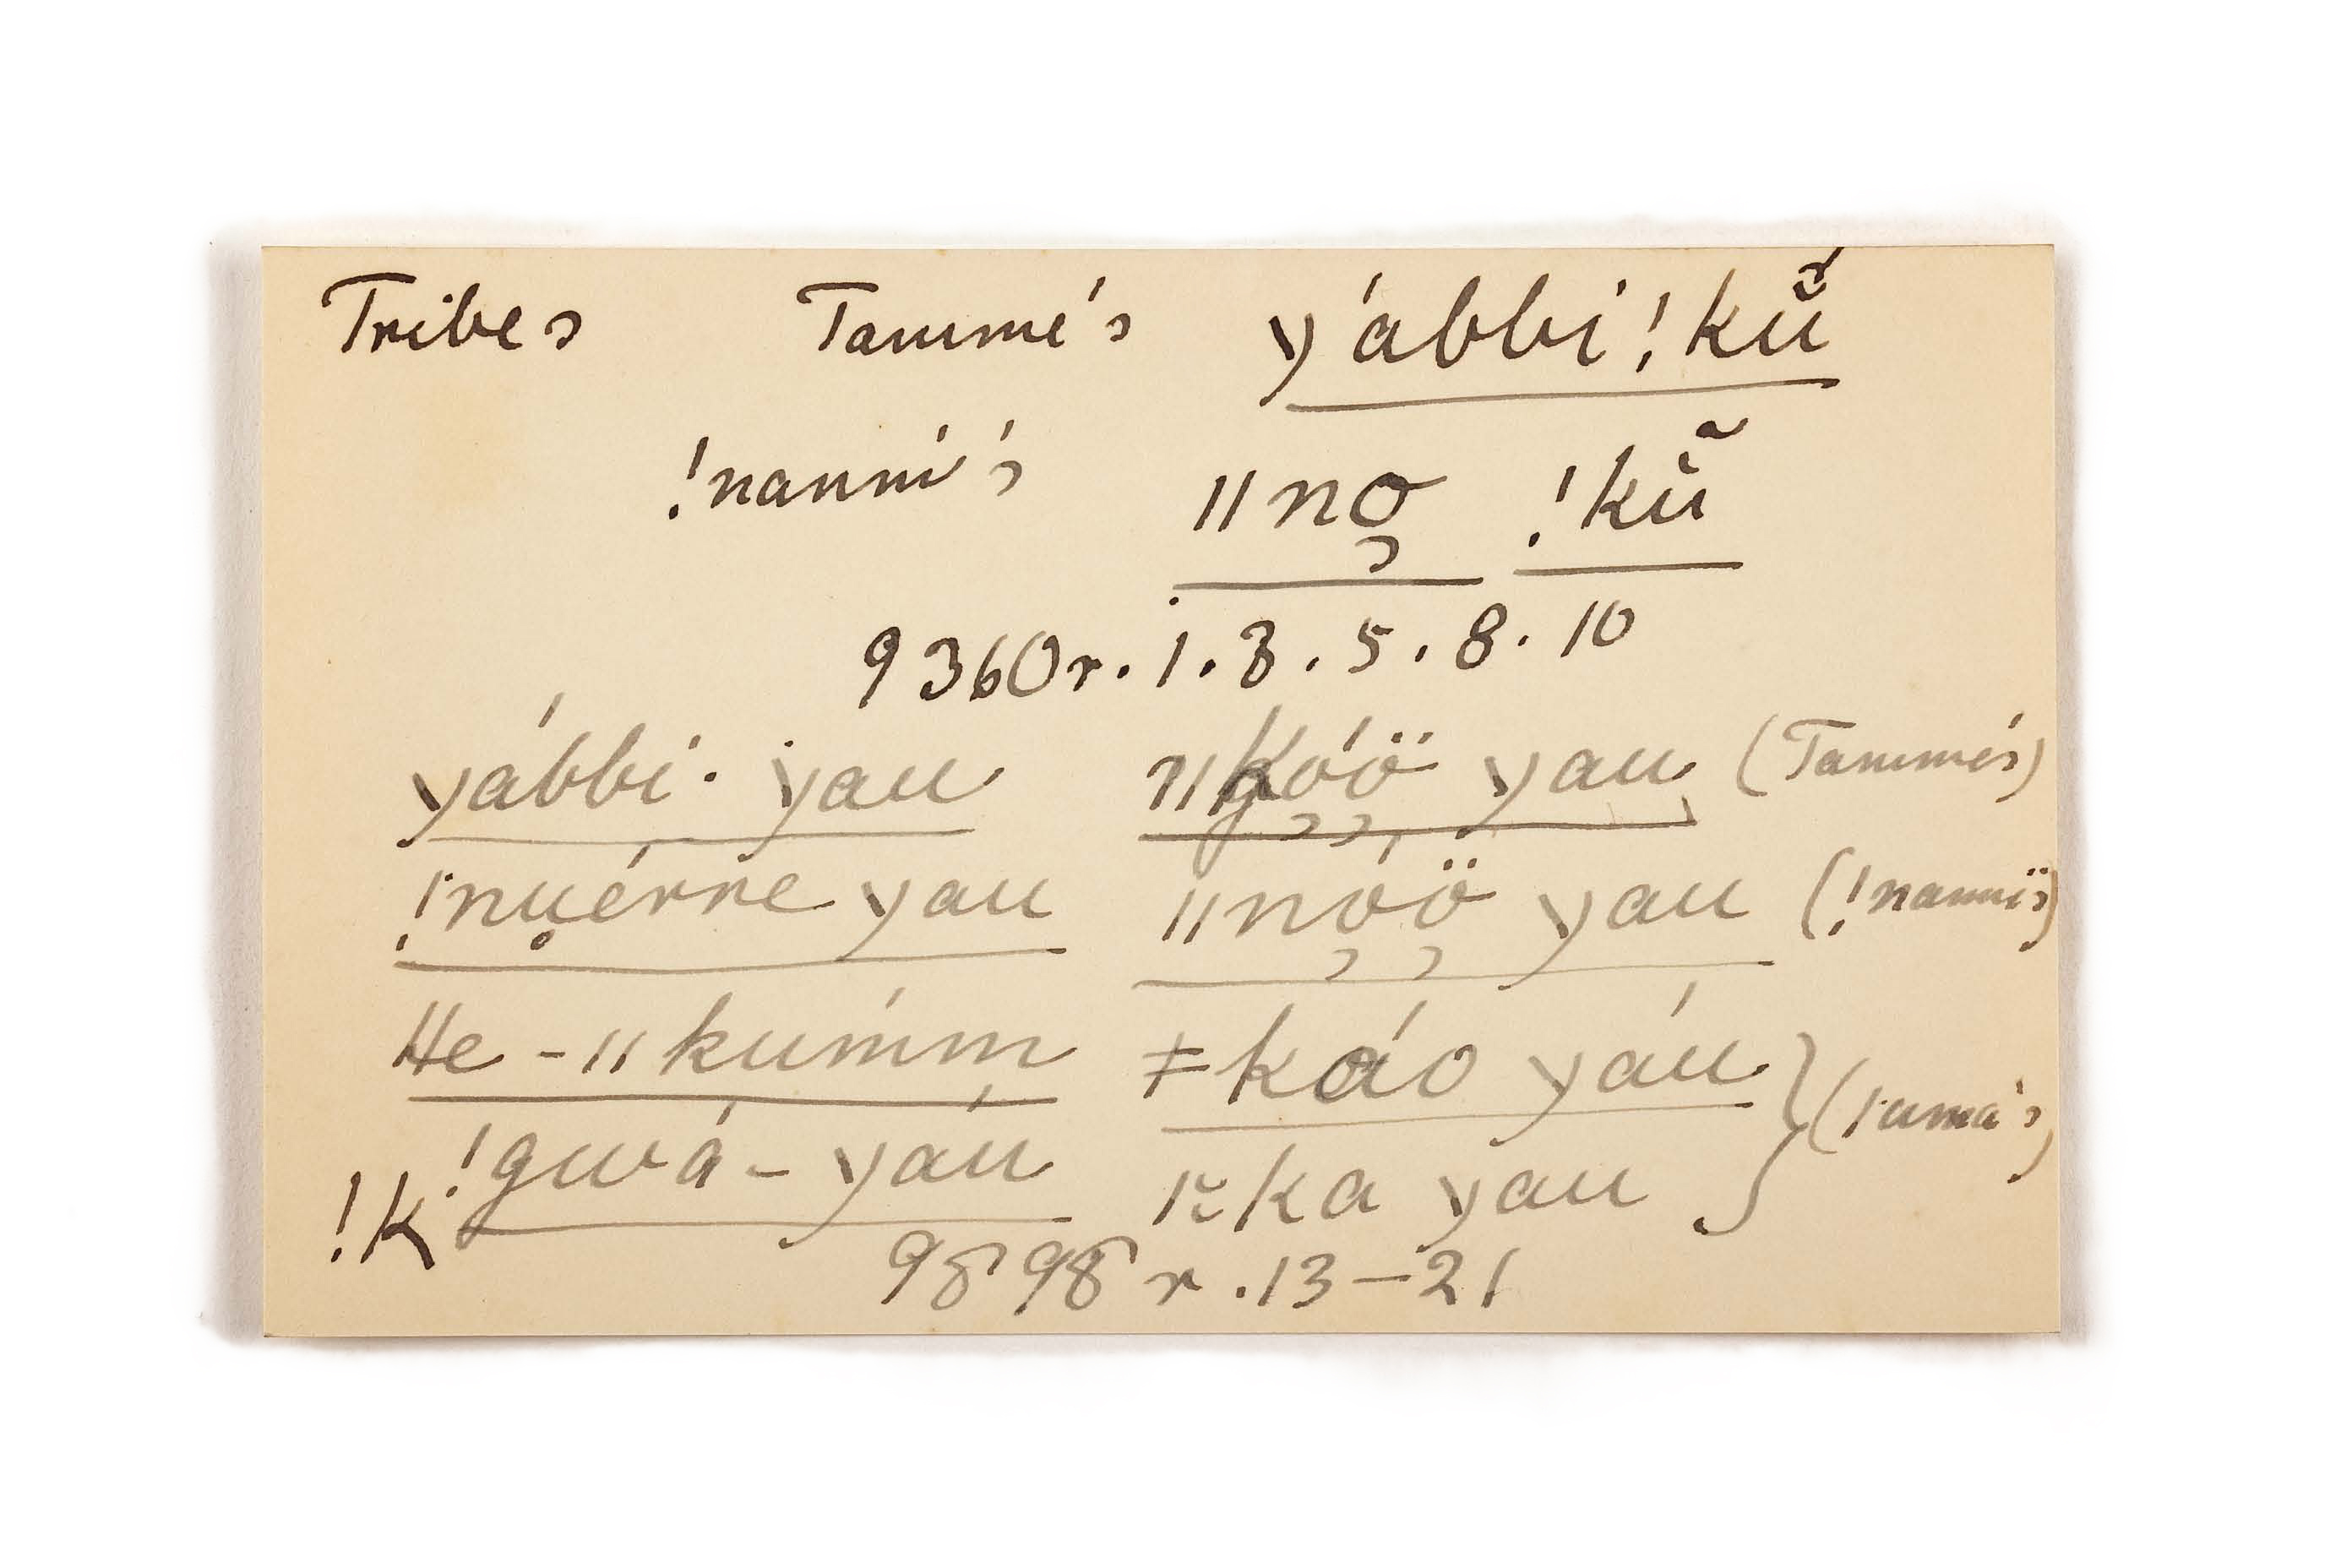 Tribes Tamme's yábbi!kũ̆
!nanni's ǁno̦ !kũ̆
9360r. 1. 3. 5. 8. 10
yábbi. yau (Tamme's)
!nu̥érre yau ǁnó̦ö̦ yau (!nanni's)
He-ǁkumḿ ǂkáo yáu
!gwá-yau
!K
9898 r. 13-21